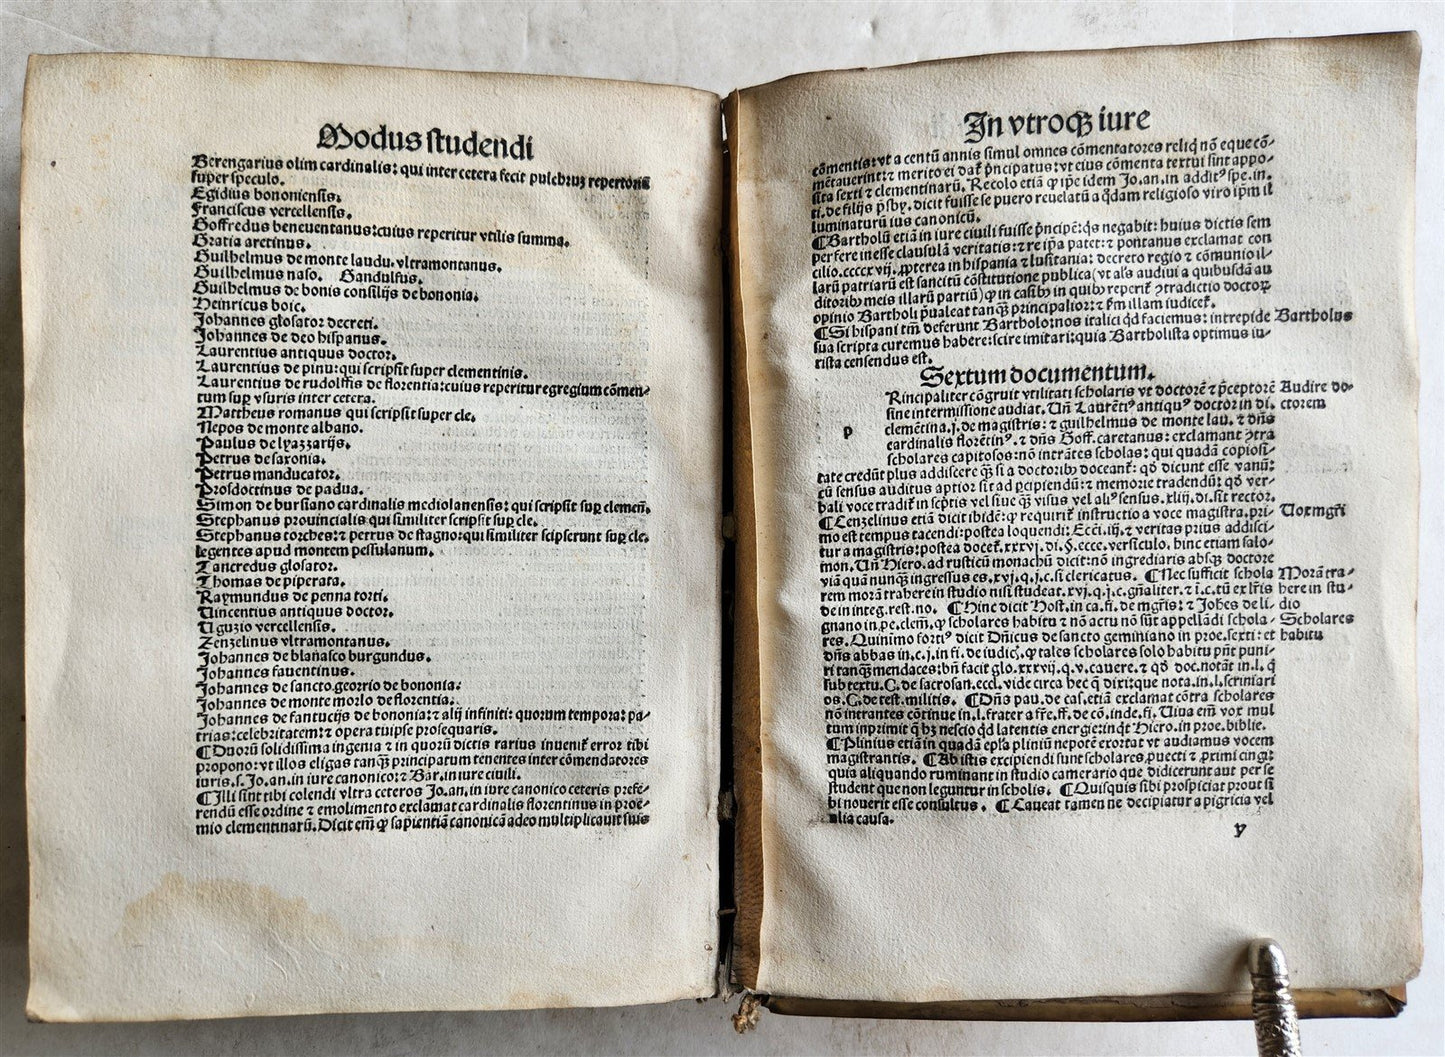 Modus studendi
Berengarius olim cardinalis: qui inter cetera fecit pulchruȝ repertoriũ
super speculo.
Egidius bononiensis.
Franciscus vercellensis.
Goffredus beneuentanus: cuius reperitur vtilis summa.
Gratia aretinus.
Guilhelmus de monte laudu. vltramontanus.
Guilhelmus naso. Gandulfus.
Guilhelmus de bonis consilijs de bononia.
Heinricus boic.
Johannes glosator decreti.
Johannes de deo hispanus.
Laurentius antiquus doctor.
Laurentius de pinu: qui scripsit super clementinis.
Laurentius de rudolffis de florentia: cuius reperitur egregium cõmen-
tum suꝑ vsuris inter cetera.
Mattheus romanus qui scripsit super cle.
Nepos de monte albano.
Paulus de lyazzarijs.
Petrus de saxonia.
Petrus manducator.
Prosdoctinus de padua.
Simon de bursiano cardinalis mediolanensis: qui scripsit suꝑ clemeñ.
Stephanus prouincialis qui similiter scripsit suꝑ cle.
Stephanus torches: ⁊ petrus de stagno: qui similiter scipserunt suꝑ cle.
legentes apud montem pessulanum.
Tancredus glosator.
Thomas de piperata.
Raymundus de penna torti.
Vincentius antiquus doctor.
Uguzio vercellensis.
Zenzelinus vltramontanus.
Johannes de blanasco burgundus.
Johannes fauentinus.
Johannes de sancto georrio de bononia.
Johannes de monte morlo de florentia.
Johannes de fantucijs de bononia: ⁊ alij infiniti: quorum tempora: pa-
trias: celebritatem: ⁊ opera tuipse prosequaris.
¶ Duorũ solidissima ingenia ⁊ in quorũ dictis rarius inuenit̃ error tibi
propono: vt illos eligas tanq̃ȝ principatum tenentes inter cõmendatores
iuris. s. Jo. an. in iure canonico: ⁊ Bar. in iure ciuili.
¶ Illi sint tibi colendi vltra ceteros Jo. an. in iure canonico ceteris prefe-
rendũ esse ordine ⁊ emolimento exclamat cardinalis florentinus in proe-
mio clementinarũ. Dicit em̃ ꝙ sapientiã canonicã adeo multiplicauit suis
In vtroqȝ iure
cõmentis: vt a centũ annis simul omnes cõmentatores reliq̃ nõ eque cõ-
mẽtauerint: ⁊ merito ei dat̃ p̃ncipatus: vt eius cõmenta textui sint appo-
sita sexti ⁊ clementinarũ. Recolo etiã ꝙ ip̃e idem Jo. an. in additꝰ spe. in.
ti. de filijs p̃sby. dicit fuisse se puero reuelatũ a q̃dam religioso viro ip̃m il
luminaturũ ius canonicũ.
¶ Bartholũ etiã in iure ciuili fuisse p̃ncipẽ: q̃s negabit: huius dictis sem
per fere inesse clausulã veritatis: ⁊ re ip̃a patet: ⁊ pontanus exclamat con
cilio. ccccxvij. ꝓpterea in hispania ⁊ lusitania: decreto regio ⁊ cõmunio il-
larũ patriarũ est sancitũ cõstitutione publica (vt al̃s audiui a quibusdã au
ditoribꝰ meis illarũ partiũ) ꝙ in casibꝰ in quibꝰ reperit̃ ꝯtradictio doctoꝝ
opinio Bartholi p̃ualeat tanq̃ȝ principalior: ⁊ ẽm illam iudicet̃.
¶ Si hispani tm̃ deferunt Bartholo: nos italici q̃d faciemus: intrepide
sua scripta curemus habere: scire imitari: quia Bartholista optimus iu-
rista censendus est.
Bartholus
Sextum documentum.
p
Rincipaliter cõgruit vtilitati scholaris vt doctorẽ ⁊ p̃ceptorẽ
sine intermissione audiat. Uñ Laurẽtiꝰ antiquꝰ doctor in di.
clementina. j. de magistris: ⁊ guilhelmus de monte lau. ⁊ dñs
cardinalis florẽtinꝰ. ⁊ dñs Goff. caretanus: exclamant ꝯtra
scholares capitosos: nõ intrãtes scholas: qui quadã copiosi-
tate credũt plus addiscere q̃ȝ si a doctoribꝰ doceant̃: qď dicunt esse vanũ:
cũ sensus auditus aptior sit ad ꝑcipiendũ: ⁊ memorie tradendũ: qď ver-
bali voce tradit̃ in sc̃ptis vel sine q̃ȝ visus vel aliꝰ sensus. xliij. di. sit rector.
¶ Cenzelinus etiã dicit ibidẽ: ꝙ requirit̃ instructio a voce magistra. pri-
mo est tempus tacendi: postea loquendi: Ecci. iij. ⁊ veritas prius addisci-
tur a magistris: postea docet̃. xxxvj. di. §. ecce. versiculo. hinc etiam salo-
mon. Uñ Hiero. ad rusticũ monachũ dicit: nõ ingrediaris absqȝ doctore
viã quã nunq̃ȝ ingressus es. xvj. q. j. c. si clericatus. ¶ Nec sufficit schola
rem morã trahere in studio nisi studeat. xvj. q. j. c. gñaliter. ⁊ i. c. tũ ex lr̃is
de in integ. rest. no. ¶ Hinc dicit Host. in ca. fi. de mgr̃is: ⁊ Johẽs de li-
gnano in pe. clem̃. ꝙ scholares habitu ⁊ nõ actu nõ sũt appellãdi schola-
res. Quinimo fortiꝰ dicit Dñicus de sancto geminiano in proe. sexti: et
dñs abbas in. c. j. in fi. de iudic̃. ꝙ tales scholares solo habitu pñt puni-
ri tanq̃ȝ mendaces: bñ facit glo. xxxvij. q. v. cauere. ⁊ qď doc. notãt in. l. q̃
sub textu. C. de sacrosan. eccl. vide circa hec q̃ dixi: que nota. in. l. scriniari
os. C. de test. militis. ¶ Dñs pau. de cas. etiã exclamat cõtra scholares
nõ intrantes cõtinue in. l. frater a fr̃e. ff. de cõ. inde. fi. Uiua em̃ vox mul
tum inprimit q̃ hȝ nescio q̃d latentis energie: inq̃t Hiero. in proe. biblie.
¶ Plinius etiã in quadã epl̃a pliniũ nepotẽ exortat vt audiamus vocem
magistrantis. ¶ Ab istis excipiendi sunt scholares ꝓuecti ⁊ ꝓximi cingi:
quia aliquando ruminant in studio camerario que didicerunt aut per se
student que non leguntur in scholis. ¶ Quisquis sibi prospiciat prout si
bi nouerit esse consultus. ¶ Caueat tamen ne decipiatur a pigricia vel
alia causa.
Audire do-
ctorem
Uox mgr̃i
Morã tra-
here in stu-
dio
Scholares
habitu
y